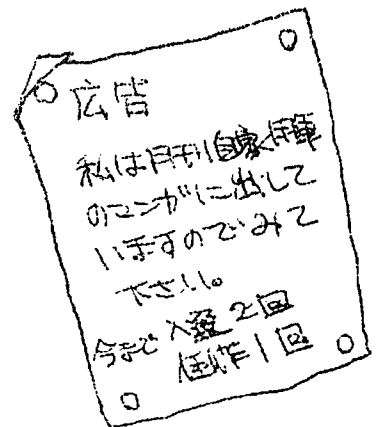 広告
私は月刊自家用車
のマンガに出して
いますのでみて
下さい。
今まで入選2回
佳作1回